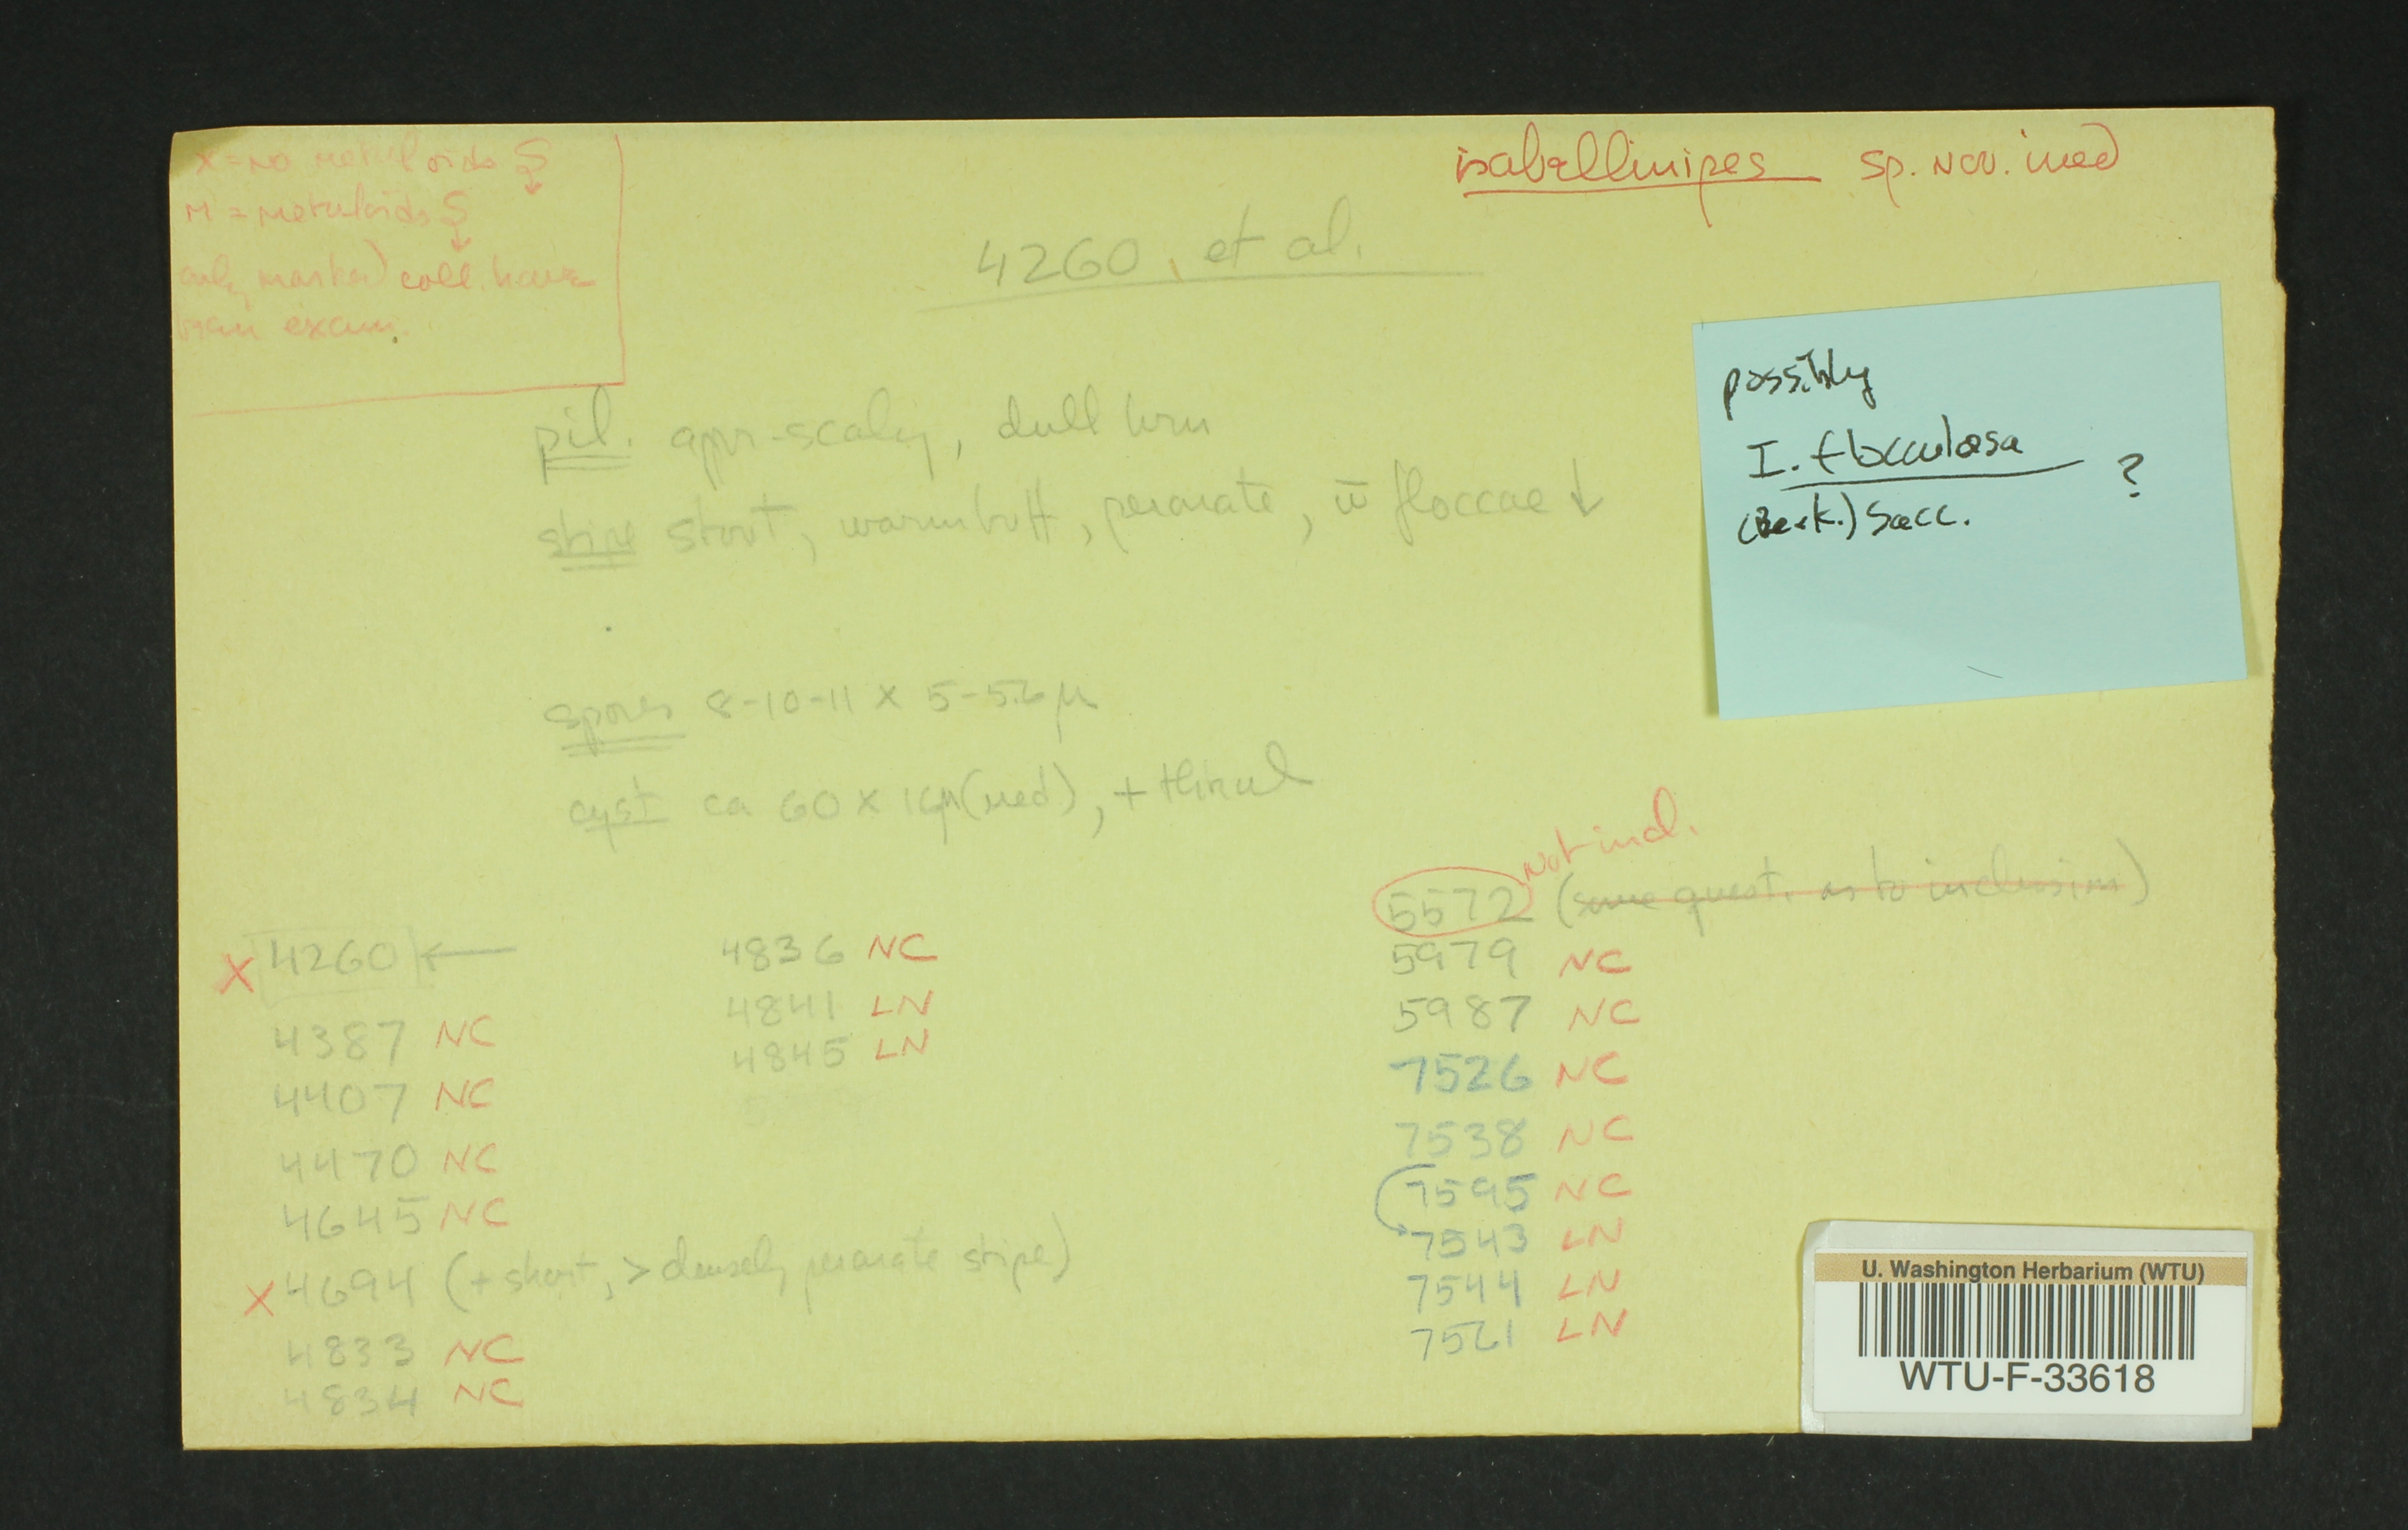 x = no metuloids S
↓
M = metuloids S
↓
only marked coll. have
been exam.
isabellinipes sp. nov. ined
4260, et al.
possibly
I. flocculosa ?
(Berk.) Sacc.
pil. appr-scaly, dull brn
stipe stout, warm buff, peronate, w̄ floccae ↓
spores 8-10-11 x 5-5.6 µ
cyst ca 60 x 16µ (med),
X 4260 ←
4387 NC
4407 NC
4470 NC
4645 NC
X 4694 (+ short, > densely peronate stipe)
4833 NC
4834 NC
4836 NC
4841 LN
4845 LN
not incl.
5572 (some quest. as to inclusion)
5979 NC
5987 NC
7526 NC
7538 NC
7595 NC
7543 LN
7544 LN
7521 LN
U. Washington Herbarium (WTU)
WTU-F-33618